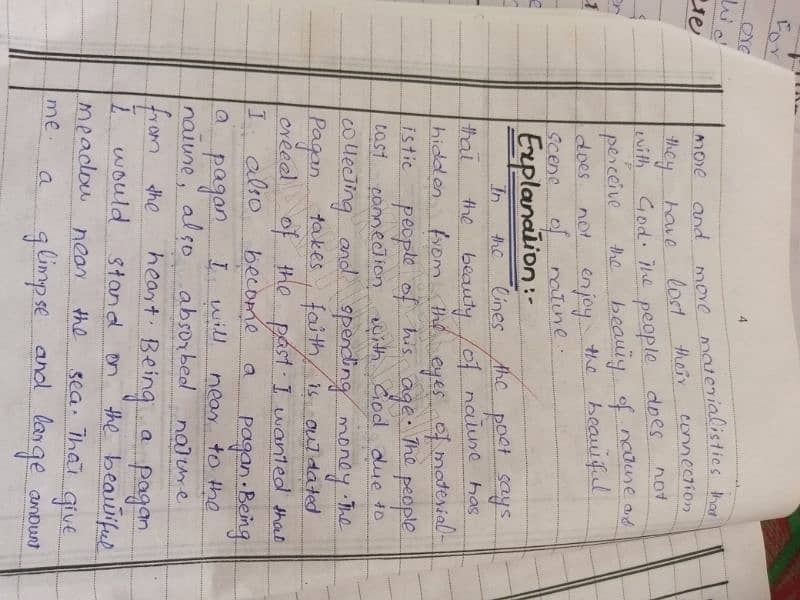 4
more and more materialistics that
they have lost their connection
with God. The people does not
perceive the beauty of nature and
does not enjoy the beautiful
scene of nature.
Explanation:-
In the lines the poet says
that the beauty of nature has
hidden from the eyes of material-
istic people of his age. The people
lost connection with God due to
collecting and spending money. The
Pagan takes faith is outdated
creed of the past. I wanted that
I also become a pagan. Being
a pagan I will near to the
nature, also absorbed nature
from the heart. Being a pagan
I would stand on the beautiful
meadow near the sea. That give
me a glimpse and large amount